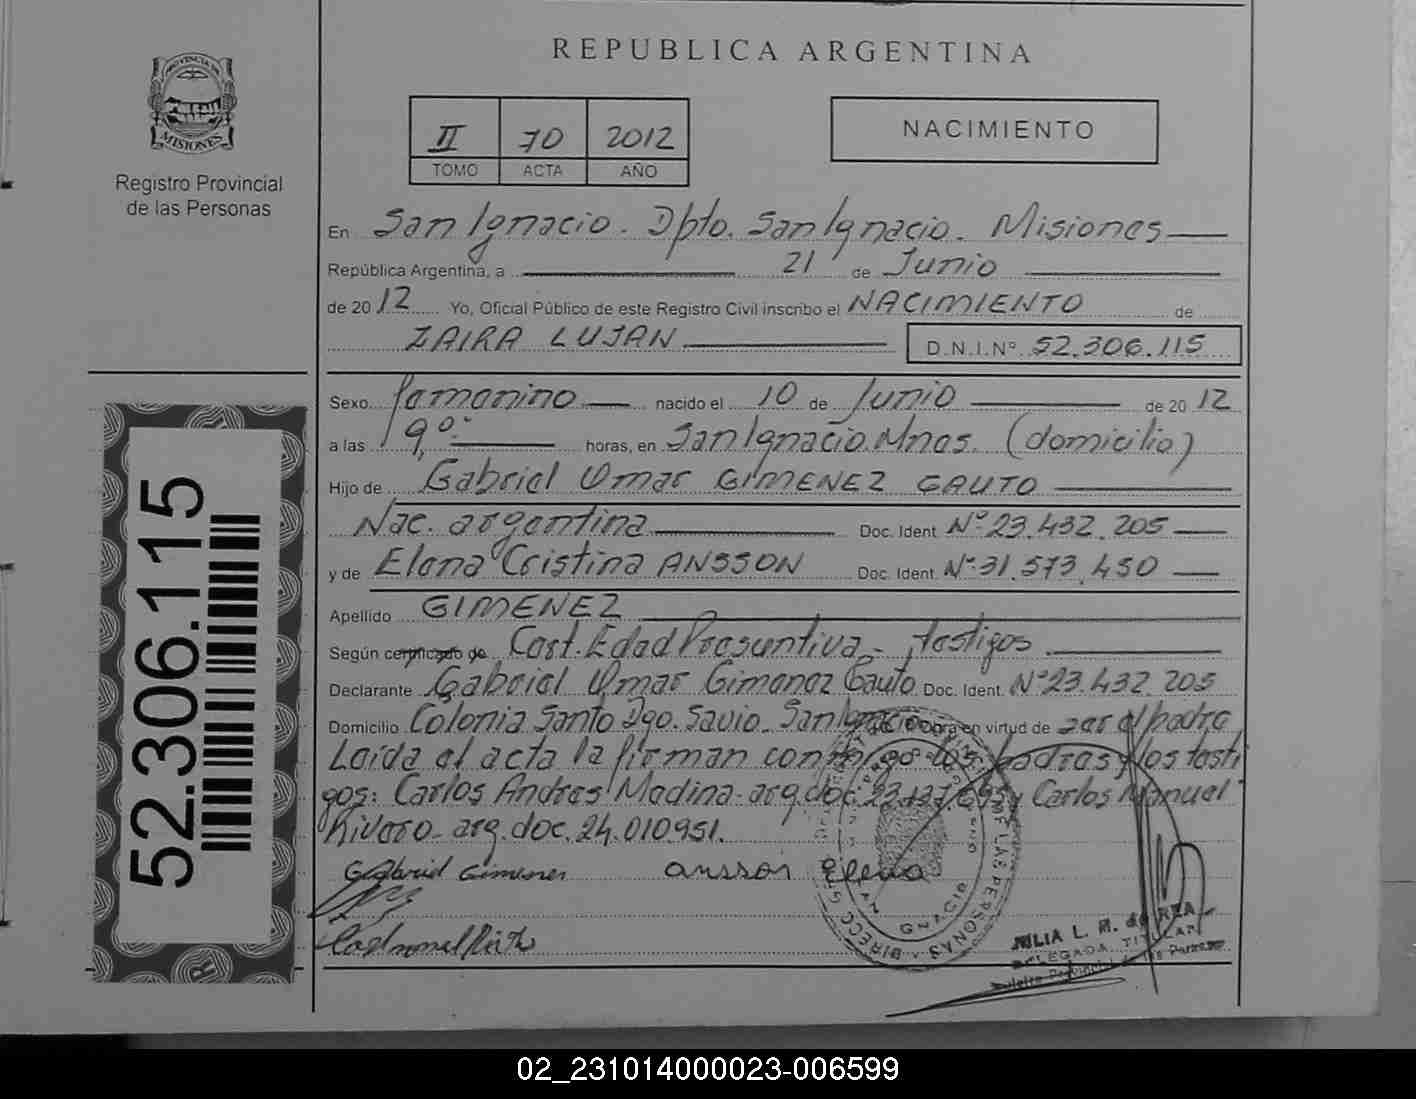 REPUBLICA ARGENTINA
PROVINCIA DE
MISIONES
Registro Provincial
de las Personas
II 70 2012
TOMO ACTA AÑO
NACIMIENTO
En San Ignacio. Dpto. San Ignacio. Misiones
República Argentina, a 21 de Junio
de 2012 Yo, Oficial Público de este Registro Civil inscribo el NACIMIENTO de
ZAIRA LUJAN D.N.I.Nº 52.306.115
Sexo femenino nacido el 10 de Junio de 2012
a las horas, en San Ignacio. Mnes. (domicilio)
Hijo de Gabriel Omar GIMENEZ GAUTO
Nac. argentina Doc. Ident. Nº 23.432.205
y de Elena Cristina ANSSON Doc. Ident. Nº 31.573.450
Apellido GIMENEZ
Según certificado de Cert. Edad Presuntiva - testigos
Declarante Gabriel Omar Gimenez Gauto Doc. Ident. Nº 23.432.205
Domicilio Colonia Santo Dgo. Savio. San Ignacio Obra en virtud de ser el padre
Leída el acta la firman conmigo los padres y los testi
gos: Carlos Andres Medina - arg. doc. y Carlos Manuel
Rivero - arg. doc. 24.010.951.
Gabriel Gimenez ansson Elena
JULIA L. M. de REA
DELEGADA TITULAR
Registro Provincial de las Personas
52.306.115
02_231014000023-006599